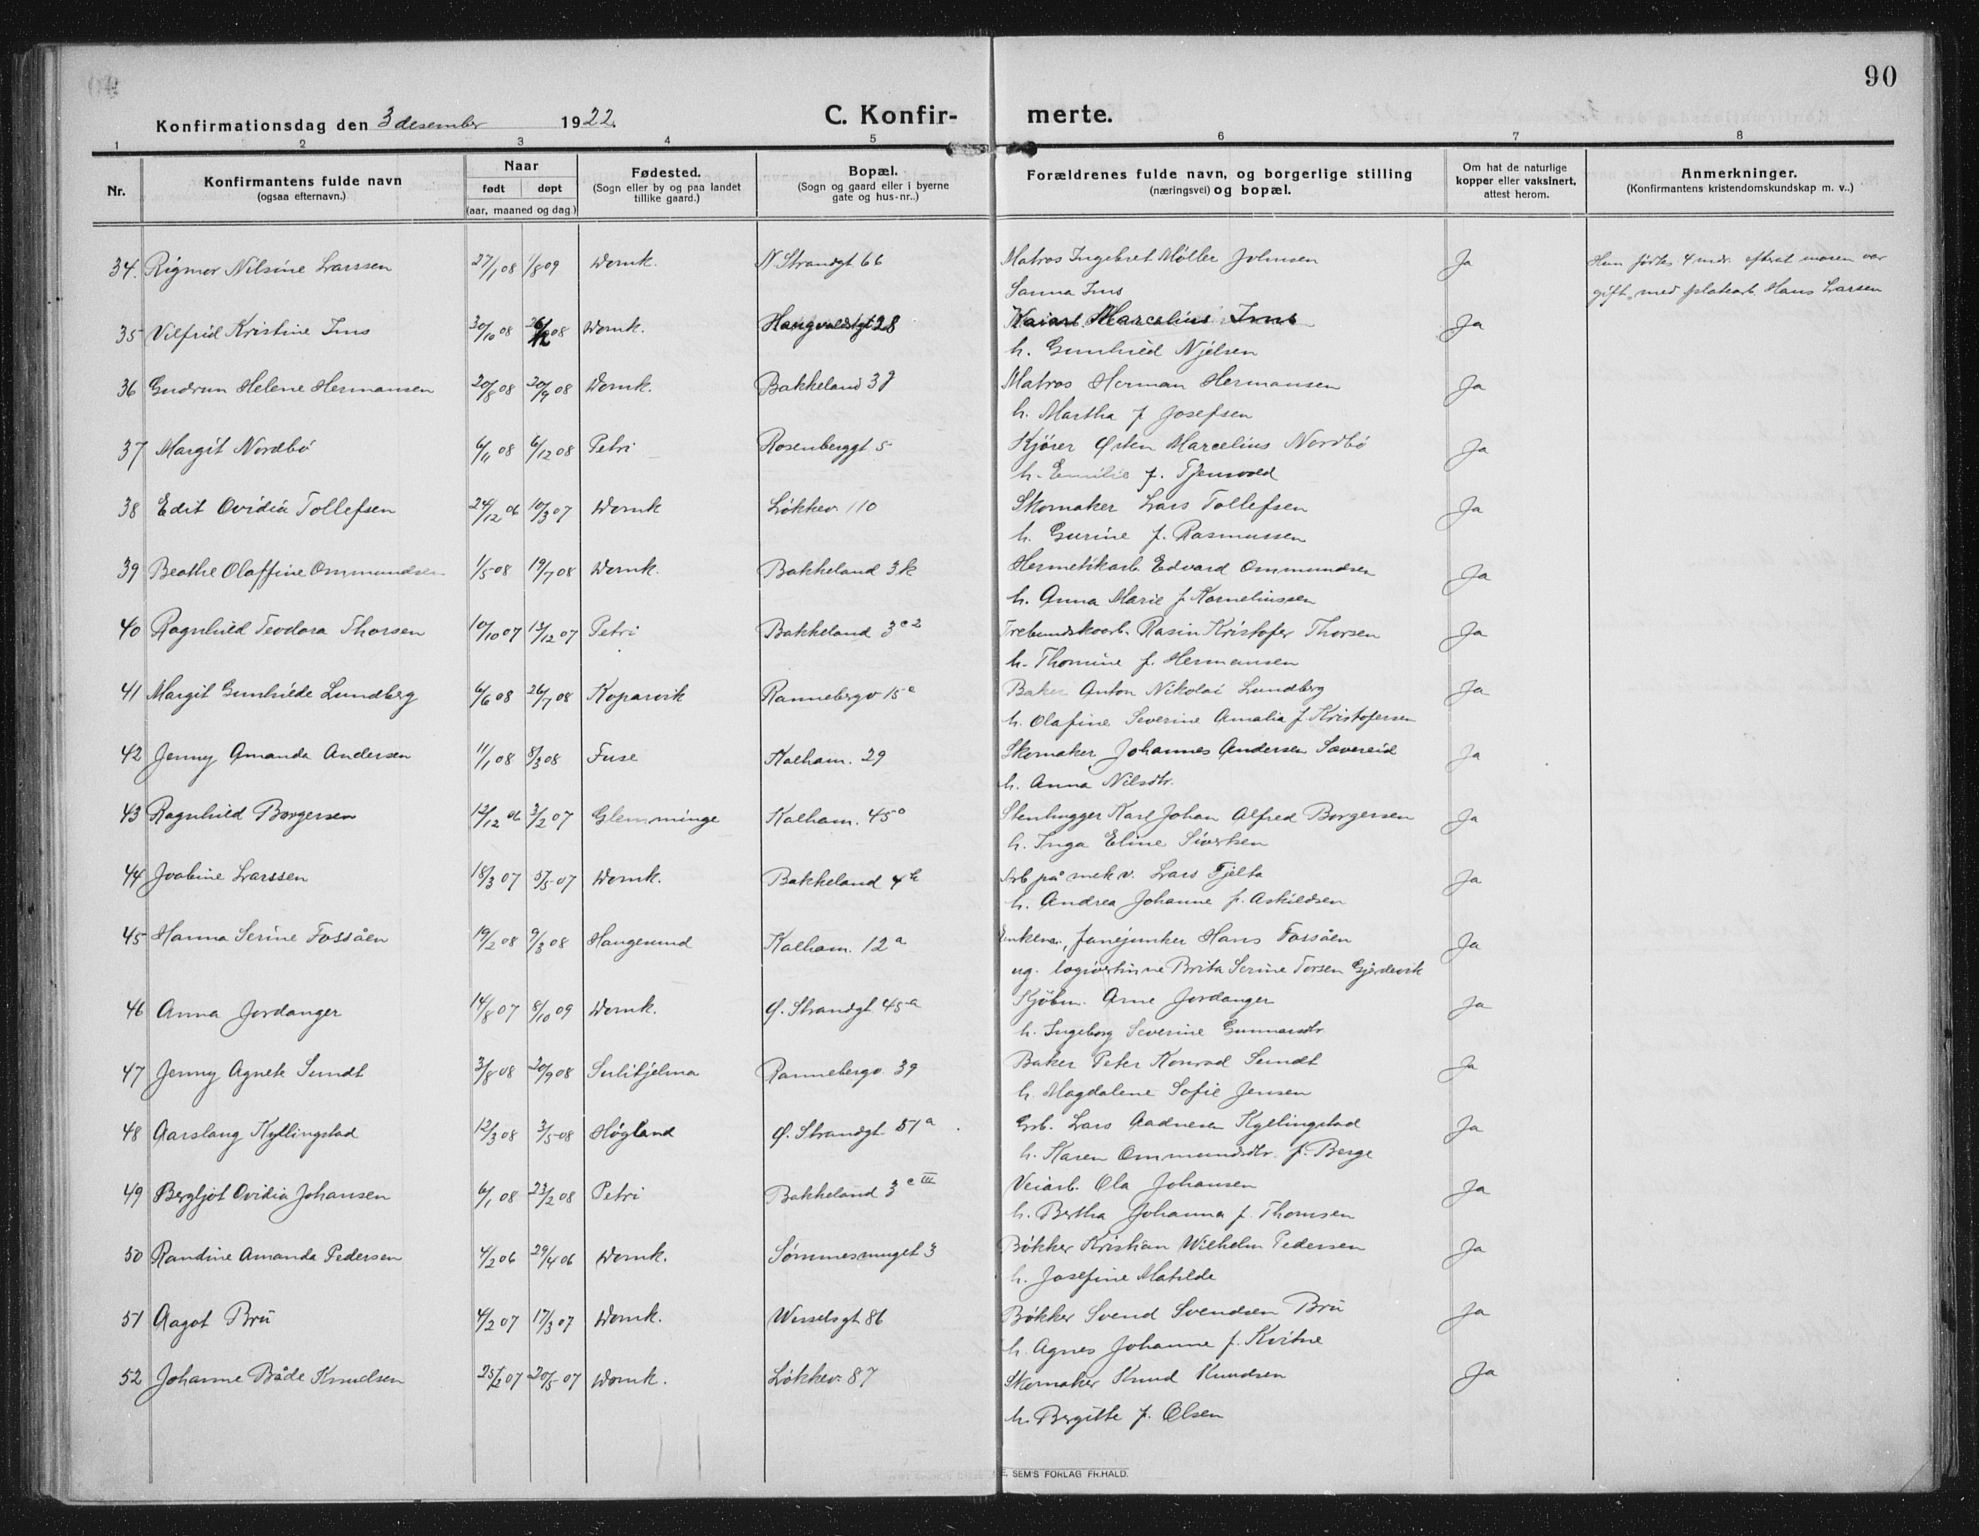 90
Konfirmationsdag den 3 desember 1922.
C. Konfirmerte.
1 2 3 4 5 6 7 8
Nr.
Konfirmantens fulde navn
(ogsaa efternavn.)
Naar
født døpt
(aar, maaned og dag.)
Fødested.
(Sogn eller by og paa landet
tillike gaard.)
Bopæl.
(Sogn og gaard eller i byerne
gate og hus-nr..)
Forældrenes fulde navn, og borgerlige stilling
(næringsvei) og bopæl.
Om hat de naturlige
kopper eller vaksinert,
attest herom.
Anmerkninger.
(Konfirmantens kristendomskundskap m. v..)
34. Rigmor Nilsine Larssen 27/1 08 1/8 09 Domk. N. Strandgt 66 Matros Ingebret Møller Johnsen Ja Hun fødtes 4 mdr. efterat moren var
Sanna Ims gift med platearb. Hans Larsen
35 Vilfrid Kristine Ims 30/10 08 26/12 08 Domk. Haugvaldstgt 28 Marcelius Ims Ja
h. Gunhild Njelsen
36 Gudrun Helene Hermansen 20/8 08 20/9 08 Domk. Bakkeland 3 Matros Herman Hermansen Ja
h. Martha f Josefsen
37 Margit Nordbø 6/11 08 6/12 08 Petri Rosenberggt 5 Kjører Østen Marcelius Nordbø Ja
h. Emilie f. Tjensvold
38 Edit Ovidia Tollefsen 24/12 06 10/3 07 Domk Løkkev. 110 Skomaker Lars Tollefsen Ja
h. Gurine f. Rasmussen
39 Beathe Olaffine Ommundsen 1/5 08 19/7 08 Domk. Bakkeland 3k Hermetikarb. Edvard Ommundsen Ja
h. Anna Marie f Korneliussen
40 Ragnhild Teodora Thorsen 10/10 07 13/12 07 Petri Bakkeland 3 c 2 Rasin Kristofer Thorsen Ja
h. Thomine f. Hermansen
41 Margit Gunhilde Lundberg 6/6 08 26/7 08 Kopervik Rannebergv 15 a Baker Anton Nikolai Lundberg Ja
h. Olafine Severine Amalia f. Kristofersen
42 Jenny Amanda Andersen 11/1 08 8/3 08 Fuse Kalham. 29 Skomaker Johannes Andersen Sævereid Ja
h. Anna Nilsdtr.
43 Ragnhild Borgersen 12/12 06 3/2 07 Glemminge Kalham. 45 a Stenhugger Karl Johan Alfred Borgersen Ja
h. Inga Eline Sivertsen
44 Joabine Larssen 18/3 07 5/5 07 Domk. Bakkeland 4 h Arb på mek v. Lars Fjelta Ja
h. Andrea Johanne f. Askildsen
45 Hanna Serine Fossåen 19/2 08 9/3 08 Haugesund Kalham. 12 a Enkem., Fanejunker Hans Fossåen Ja
ug. logivertinne Brita Serine Torsen Gjerdevik
46 Anna Jordanger 14/8 07 8/10 09 Domk. Ø. Strandgt 45 a Kjøbm. Arne Jordanger Ja
h. Ingeborg Severine Gunnarsdtr
47 Jenny Agnete Sundt 3/8 08 20/9 08 Sulitjelma Rannebergv. 39 Baker Peter Konrad Sundt Ja
h. Magdalene Sofie Jensen
48 Aarslaug Kyllingstad 12/3 08 3/5 08 Høgland Ø. Strandgt 51 a Grb. Lars Aadnesen Kyllingstad Ja
h. Karen Ommundsdtr. f. Berge
49 Bergljot Ovidia Johansen 6/1 08 23/2 08 Petri Bakkeland 3 c III Veiarb. Ola Johansen Ja
h. Bertha Johanna f. Thomsen
50 Randine Amanda Pedersen 4/2 06 29/4 06 Domk. Sømmesmuget 3 Bøkker Kristian Wilhelm Pedersen Ja
h. Josefine Matilde
51 Aagot Bru 4/2 07 17/3 07 Domk. Wesselsgt 86 Bøkker Svend Svendsen Bru Ja
h. Agnes Johanne f. Kvitne
52 Johanne Både Knudsen 25/2 07 20/5 07 Domk. Løkkev. 87 Skomaker Knud Knudsen Ja
h. Bergitte f. Olsen
E. SEM'S FORLAG FR.HALD.